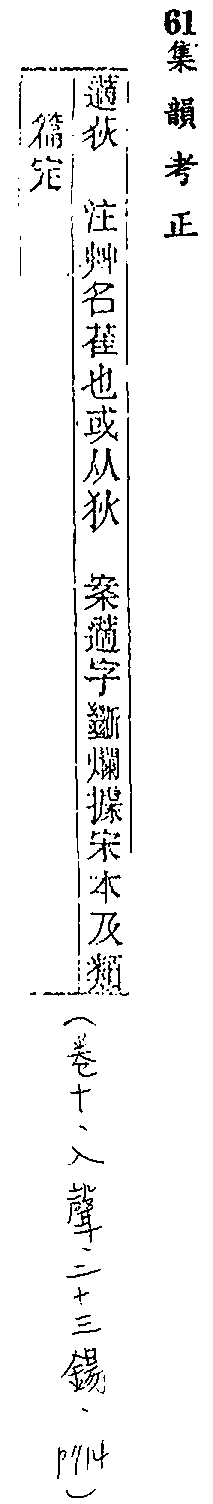 61集韻考正
薖荻 注艸名萑也或从狄 案薖字斷爛據宋本及類
篇定
(卷十、入聲、二十三錫、P714)